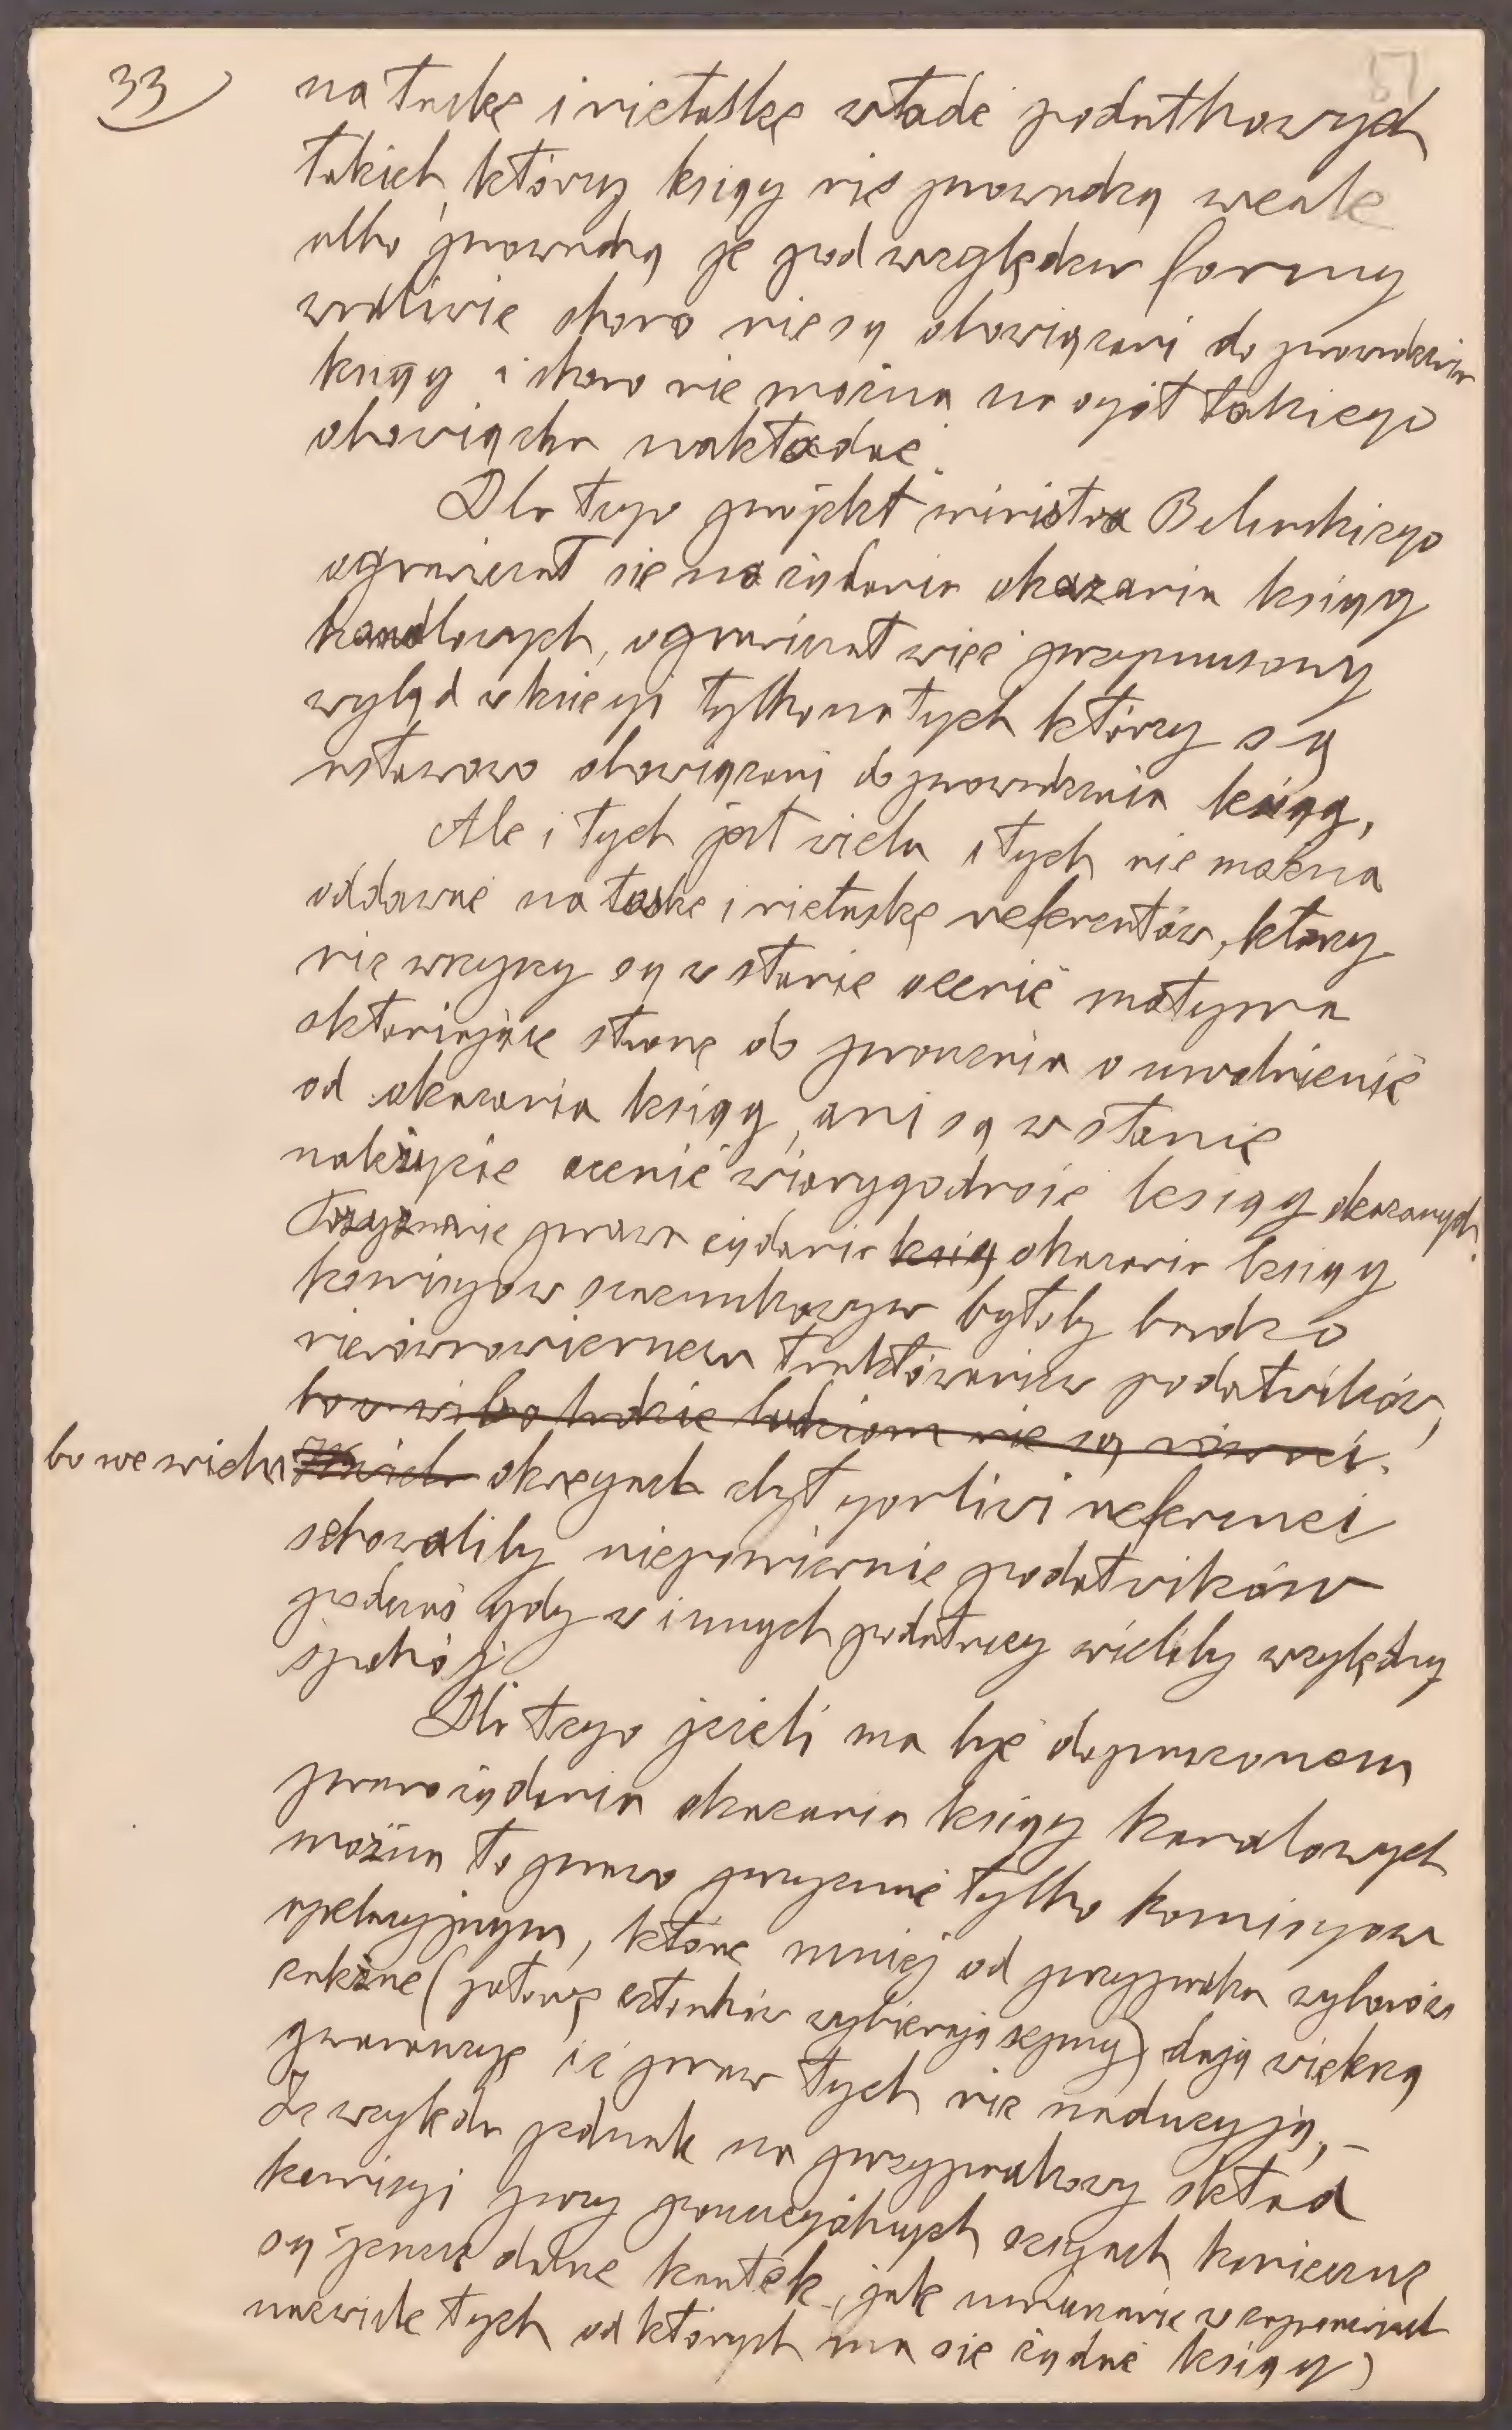 33) na łaskę i niełaskę władz podatkowych
51
takich, którzy ksiąg nie prowadzą wcale
albo prowadzą je pod względem formy
wadliwie skoro nie są obowiązani do prowadzenia
ksiąg i skoro nie można na ogół takiego
obowiązku nakładać.
Dla tego projekt ministra Bilińskiego
ograniczał się na żądania okazania ksiąg
handlowych, ograniczał więc przymusowy
wgląd w księgi tylko na tych którzy są
ustawowo obowiązani do prowadzenia ksiąg,
Ale i tych jest wielu i tych nie można
oddawać na łaskę i niełaskę referentów, którzy
nie wszyscy są w stanie ocenić motywa
skłaniające stronę do proszenia o uwolnienie
od okazania ksiąg, ani są w stanie
należycie ocenić wiarygodność ksiąg okazanych.
Przyznanie prawa żądania ksiąg okazania ksiąg
komisyom szacunkowym byłoby bardzo
nierównomiernem traktowaniem podatników,
ludzie ludziom nie są równi.
bo we wielu okręgach zbyt gorliwi referenci
sekowaliby niepomiernie podatników
podczas gdy w innych podatnicy mieliby względny
spokój
Dla tego jeżeli ma być dopuszczonem
prawo żądania okazania ksiąg handlowych
można to prawo przyznać tylko komisyom
apelacyjnym, które mniej od przypadku wyborów
zależne (połowę członków wybierają sejmy) dają większą
gwarancyę iż praw tych nie nadużyją, –
Ze względu jednak na przypadkowy skład
komisyi przy poszczególnych sesyach konieczne
są jeszcze dalsze kautele, jak umieszczanie w zaproszeniach
nazwisk tych od których ma się żądać ksiąg)